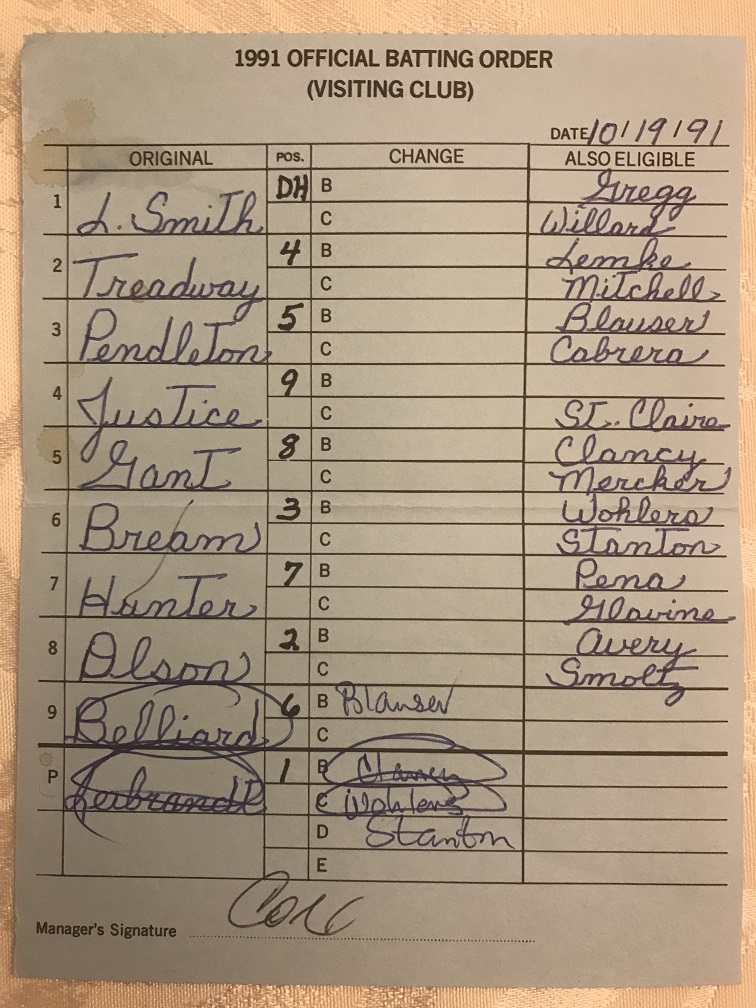 1991 OFFICIAL BATTING ORDER
(VISITING CLUB)
DATE 10/19/91
ORIGINAL POS. CHANGE ALSO ELIGIBLE
1 L. Smith DH B Gregg
C Willard
2 Treadway 4 B Lemke
C Mitchell
3 Pendleton 5 B Blauser
C Cabrera
4 Justice 9 B
C St. Claire
5 Gant 8 B Clancy
C Mercker
6 Bream 3 B Wohlers
C Stanton
7 Hunter 7 B Pena
C Glavine
8 Olson 2 B Avery
C Smoltz
9 Belliard 6 B Blauser
C
P Leibrandt 1 B Clancy
C Wohlers
D Stanton
E
Manager's Signature Cox